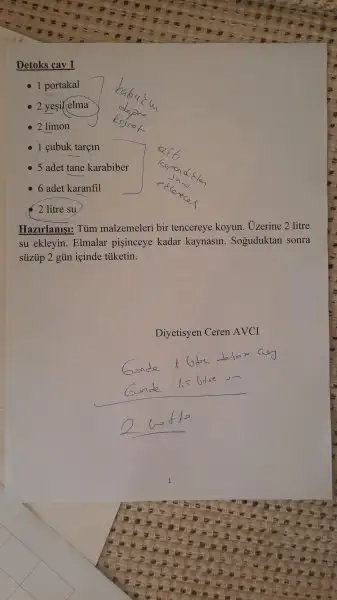 Detoks çay 1
• 1 portakal
• 2 yeşil elma
• 2 limon
• 1 çubuk tarçın
• 5 adet tane karabiber
• 6 adet karanfil
• 2 litre su
kabuklu
Hazırlanışı: Tüm malzemeleri bir tencereye koyun. Üzerine 2 litre
su ekleyin. Elmalar pişinceye kadar kaynasın. Soğuduktan sonra
süzüp 2 gün içinde tüketin.
Diyetisyen Ceren AVCI
Günde 1 litre detox çay
Günde 1.5 litre su
2 hafta
1